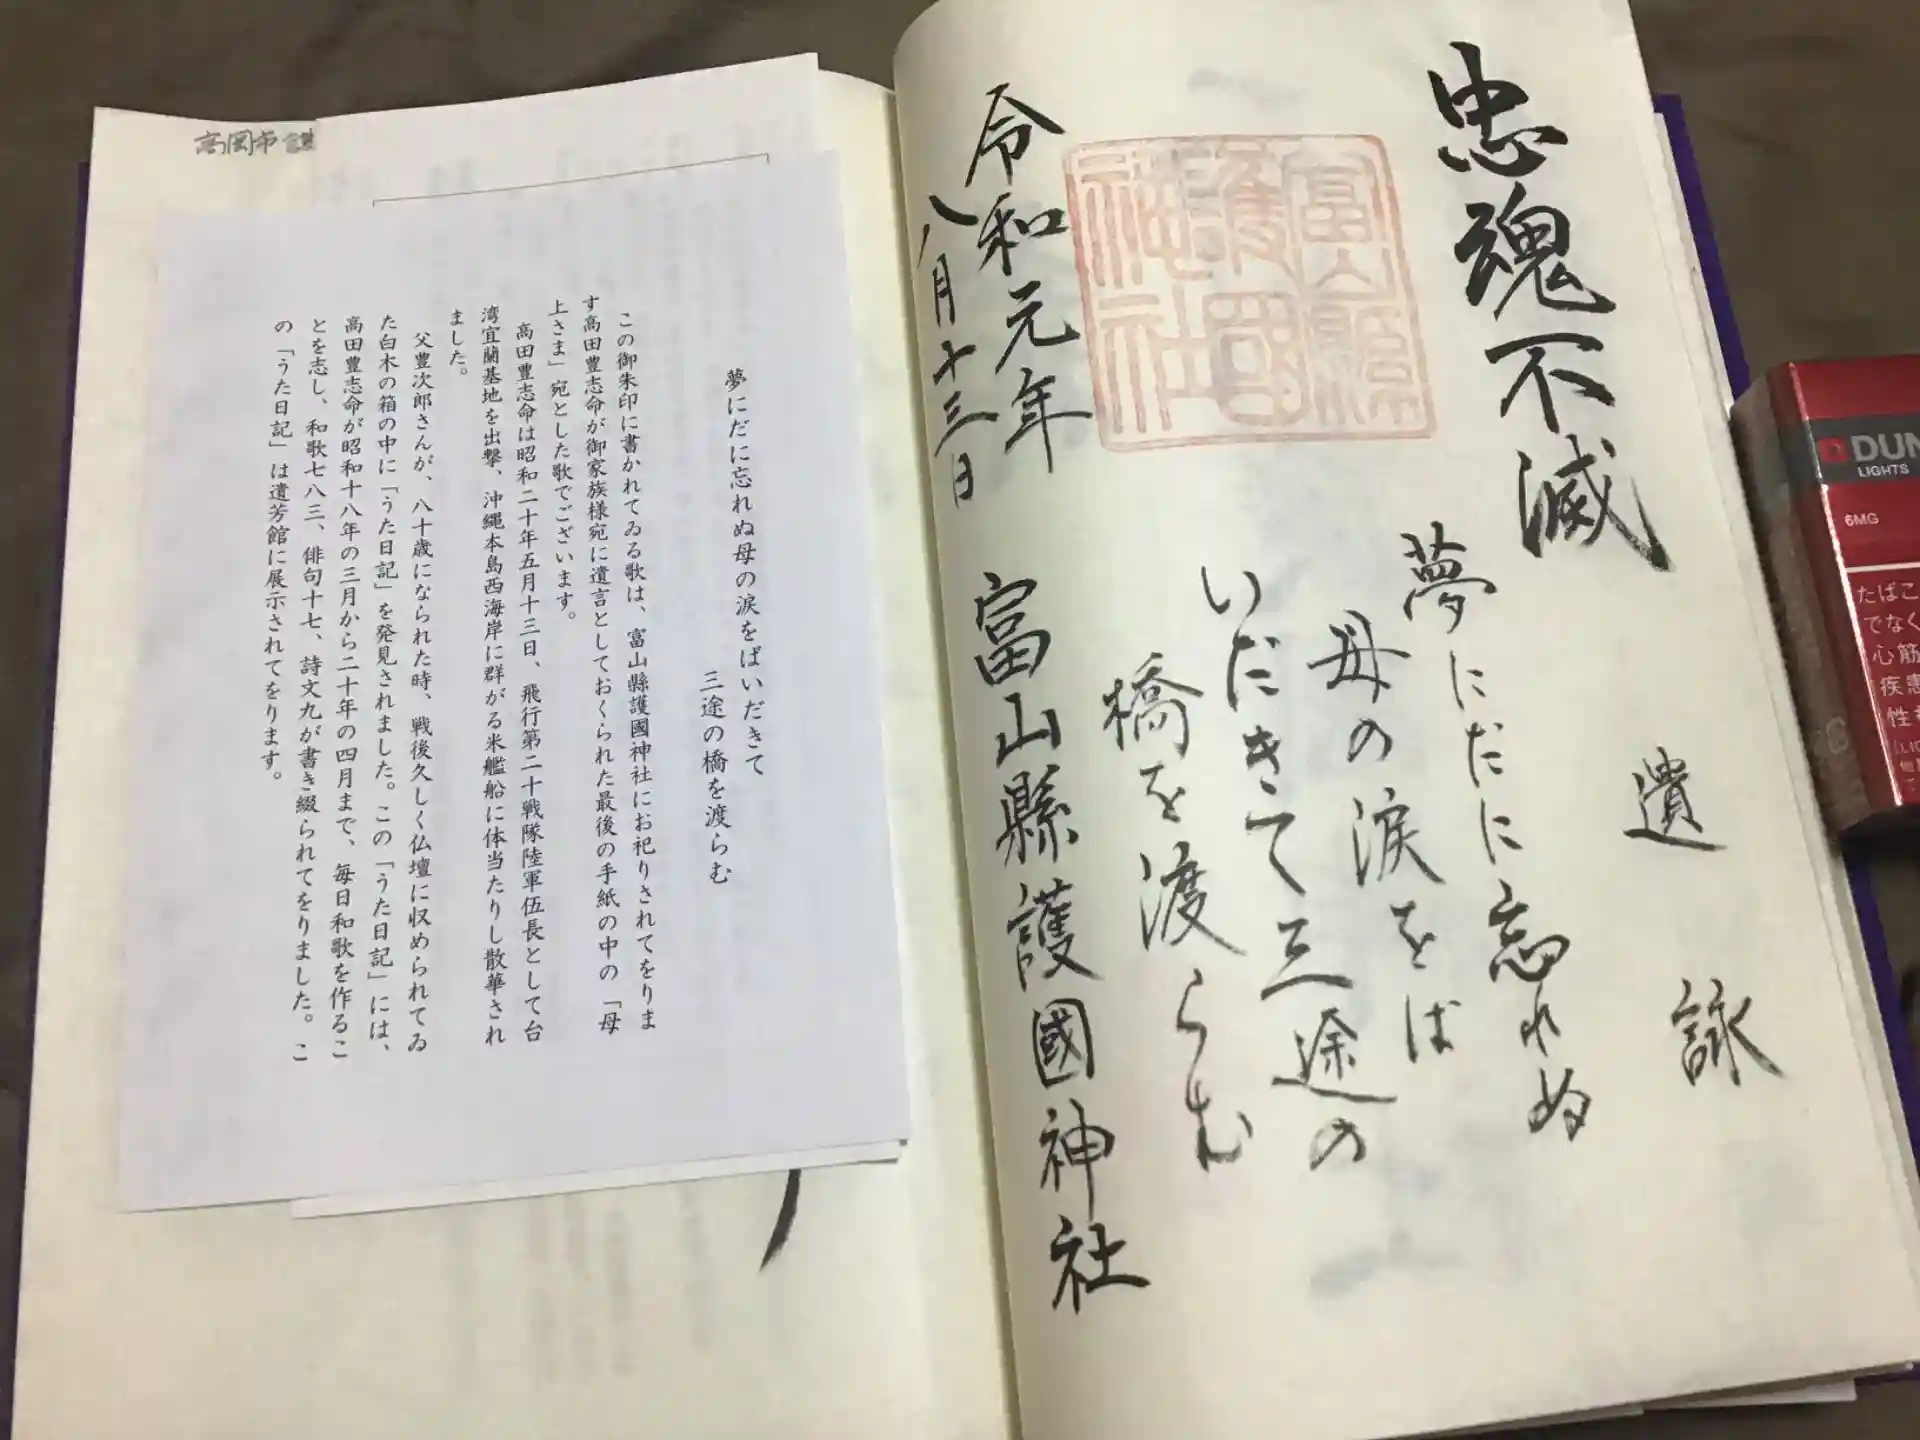 忠魂不滅
遺詠
夢にだに忘れぬ
母の涙をば
いだきて三途の
橋を渡らむ
富山縣
護國
神社
令和元年
八月十三日
富山縣護國神社
高岡市
夢にだに忘れぬ母の涙をばいだきて
三途の橋を渡らむ
この御朱印に書かれてゐる歌は、富山縣護國神社にお祀りされてをりま
す高田豊志命が御家族様宛に遺言としておくられた最後の手紙の中の「母
上さま」宛とした歌でございます。
高田豊志命は昭和二十年五月十三日、飛行第二十戦隊陸軍伍長として台
湾宜蘭基地を出撃、沖縄本島西海岸に群がる米艦船に体当たりし散華され
ました。
父豊次郎さんが、八十歳になられた時、戦後久しく仏壇に収められてゐ
た白木の箱の中に「うた日記」を発見されました。この「うた日記」には、
高田豊志命が昭和十八年の三月から二十年の四月まで、毎日和歌を作るこ
とを志し、和歌七八三、俳句十七、詩文九が書き綴られてをりました。こ
の「うた日記」は遺芳館に展示されてをります。
DUN
LIGHTS
6MG
たばこ
でなく
心筋
疾患
性